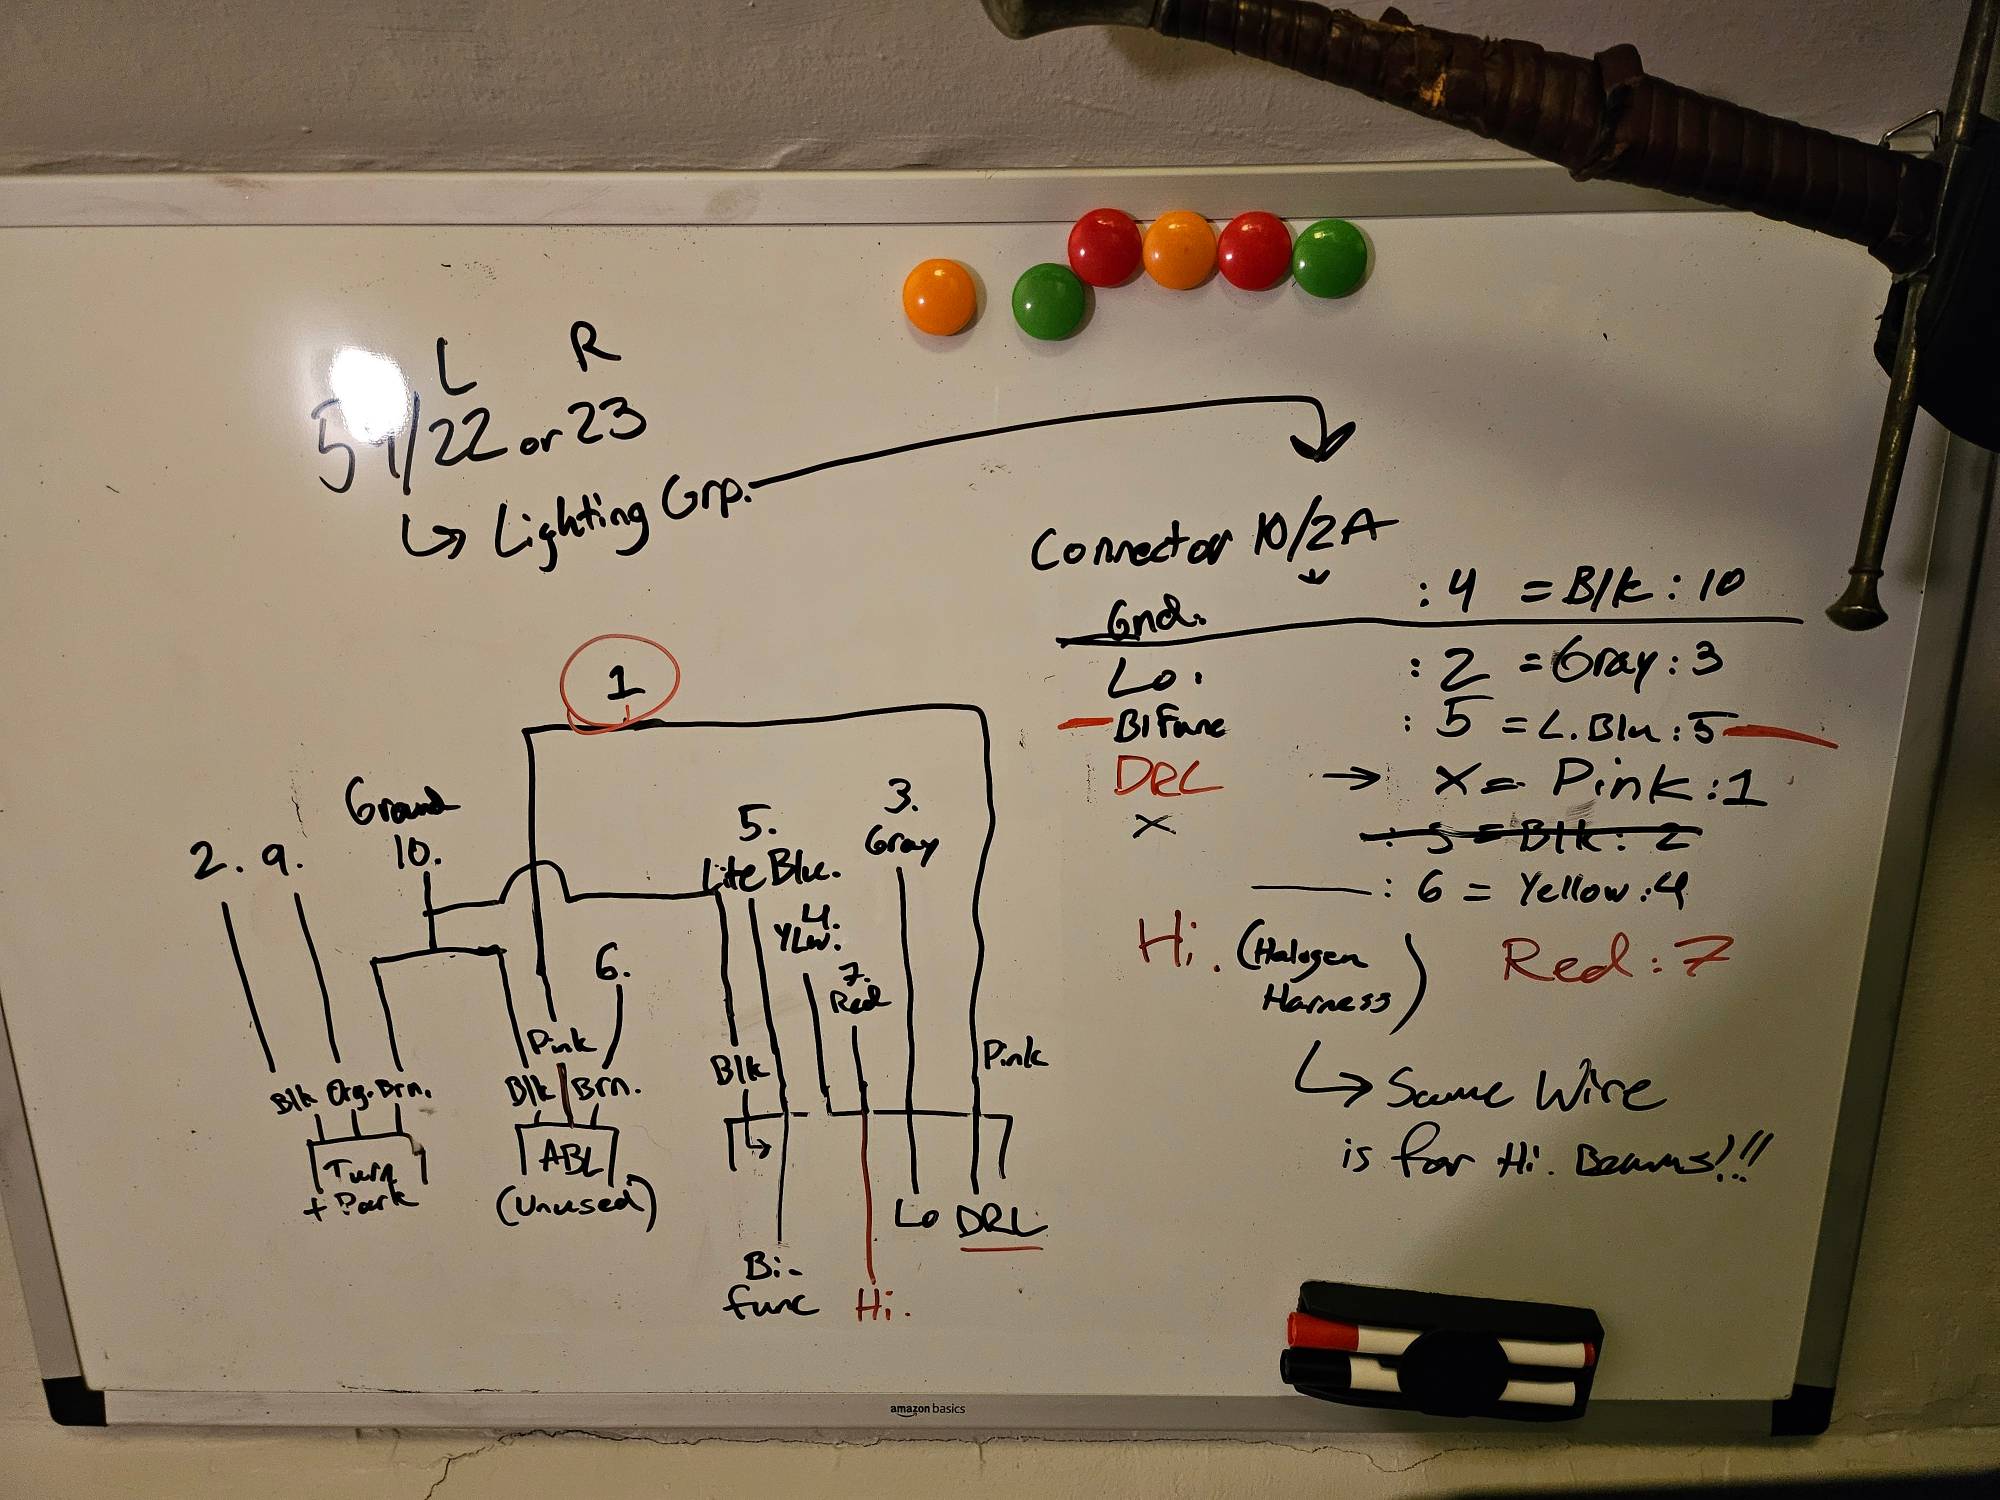 L R
54/22 or 23
↳ Lighting Grp.
Connector 10/2A
Gnd. : 4 = Blk : 10
Lo. : 2 = Gray : 3
BIFunc : 5 = L. Blu : 5
DRL → X = Pink : 1
X : 5 = Blk : 2
: 6 = Yellow : 4
Hi. (Halogen Harness) Red : 7
↳ Same Wire
is for Hi. Beams!!!
1
Ground
10.
2. 9.
5.
Lite Blu.
3.
Gray
4.
YLw.
6.
7.
Red
Pink
Pink
Blk Org. Brn.
Blk Brn.
Blk
Turn
+ Park
ABL
(Unused)
Lo DRL
Bi-
func
Hi.
amazon basics